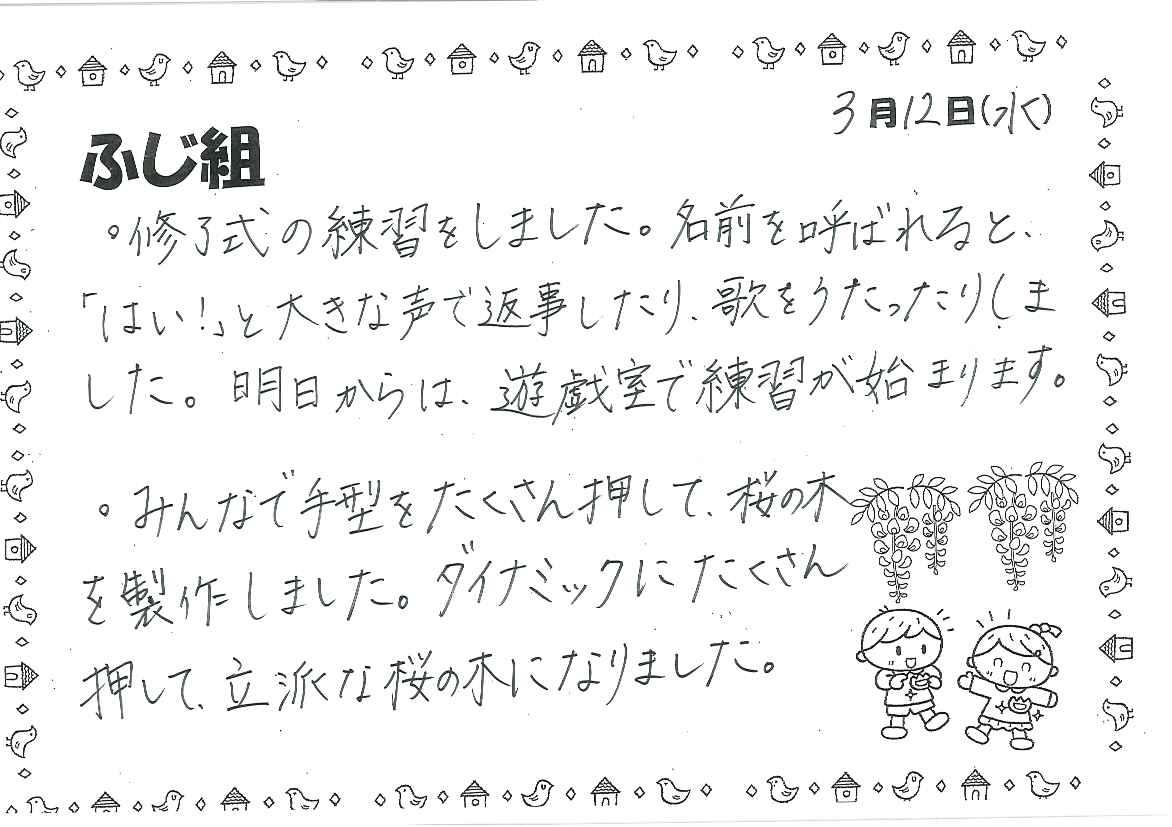 3月12日(水)
ふじ組
。修了式の練習をしました。名前を呼ばれると、
「はい!」と大きな声で返事したり、歌をうたったりしま
した。明日からは、遊戯室で練習が始まります。
。みんなで手型をたくさん押して、桜の木
を製作しました。ダイナミックにたくさん
押して、立派な桜の木になりました。